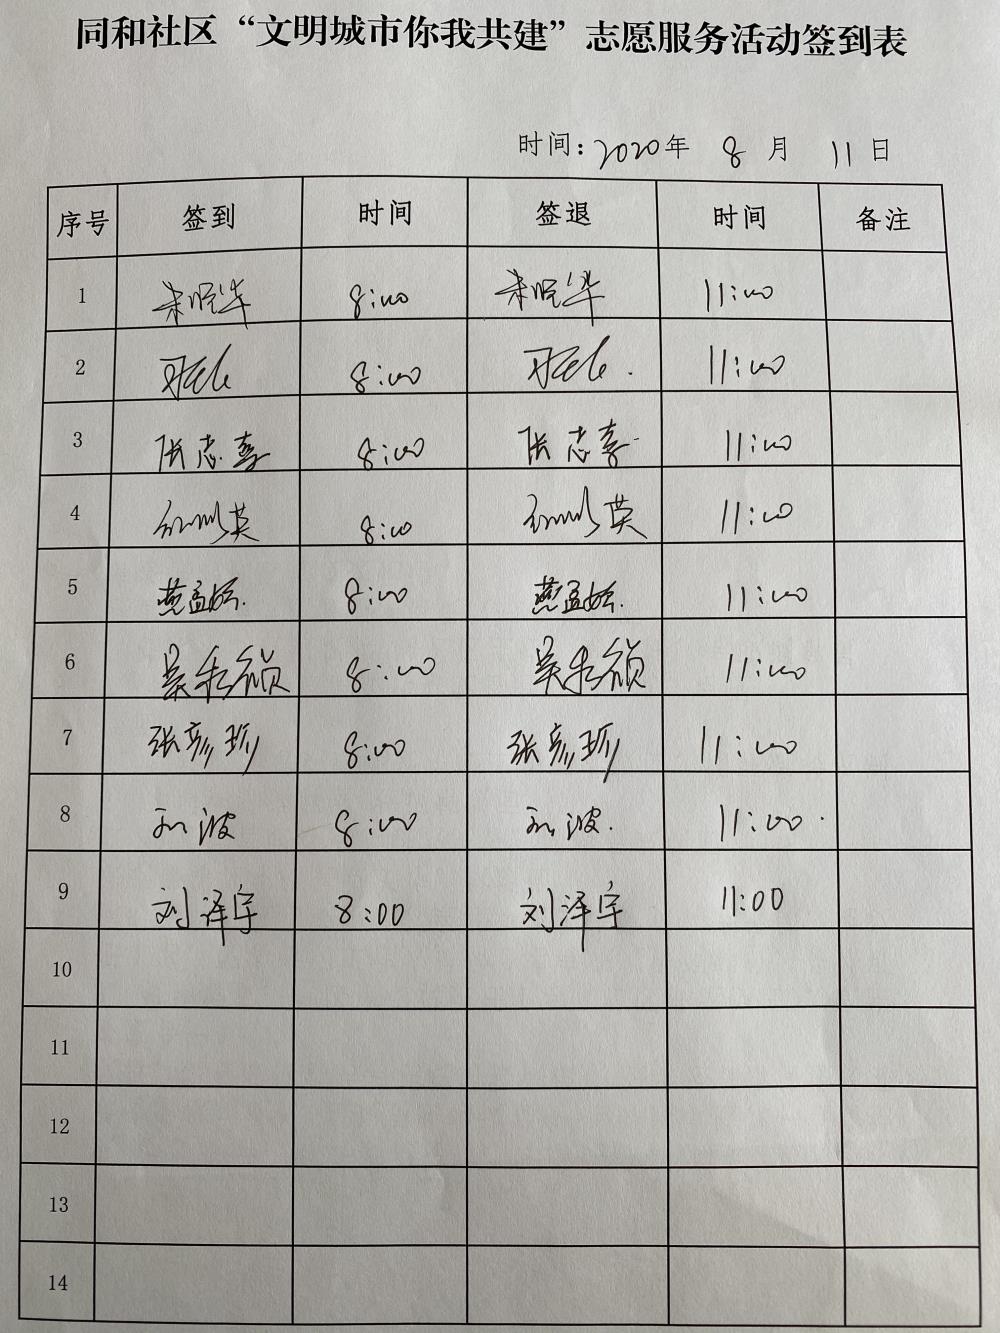 同和社区“文明城市你我共建”志愿服务活动签到表
时间：2020年 8 月 11 日
序号 签到 时间 签退 时间 备注
1 朱晓华 8:00 朱晓华 11:00
2 8:00 11:00
3 张志喜 8:00 张志喜 11:00
4 英 8:00 英 11:00
5 燕孟娇 8:00 燕孟娇 11:00
6 吴秀颀 8:00 吴秀颀 11:00
7 张彦珍 8:00 张彦珍 11:00
8 孙波 8:00 孙波 11:00
9 刘泽宇 8:00 刘泽宇 11:00
10
11
12
13
14